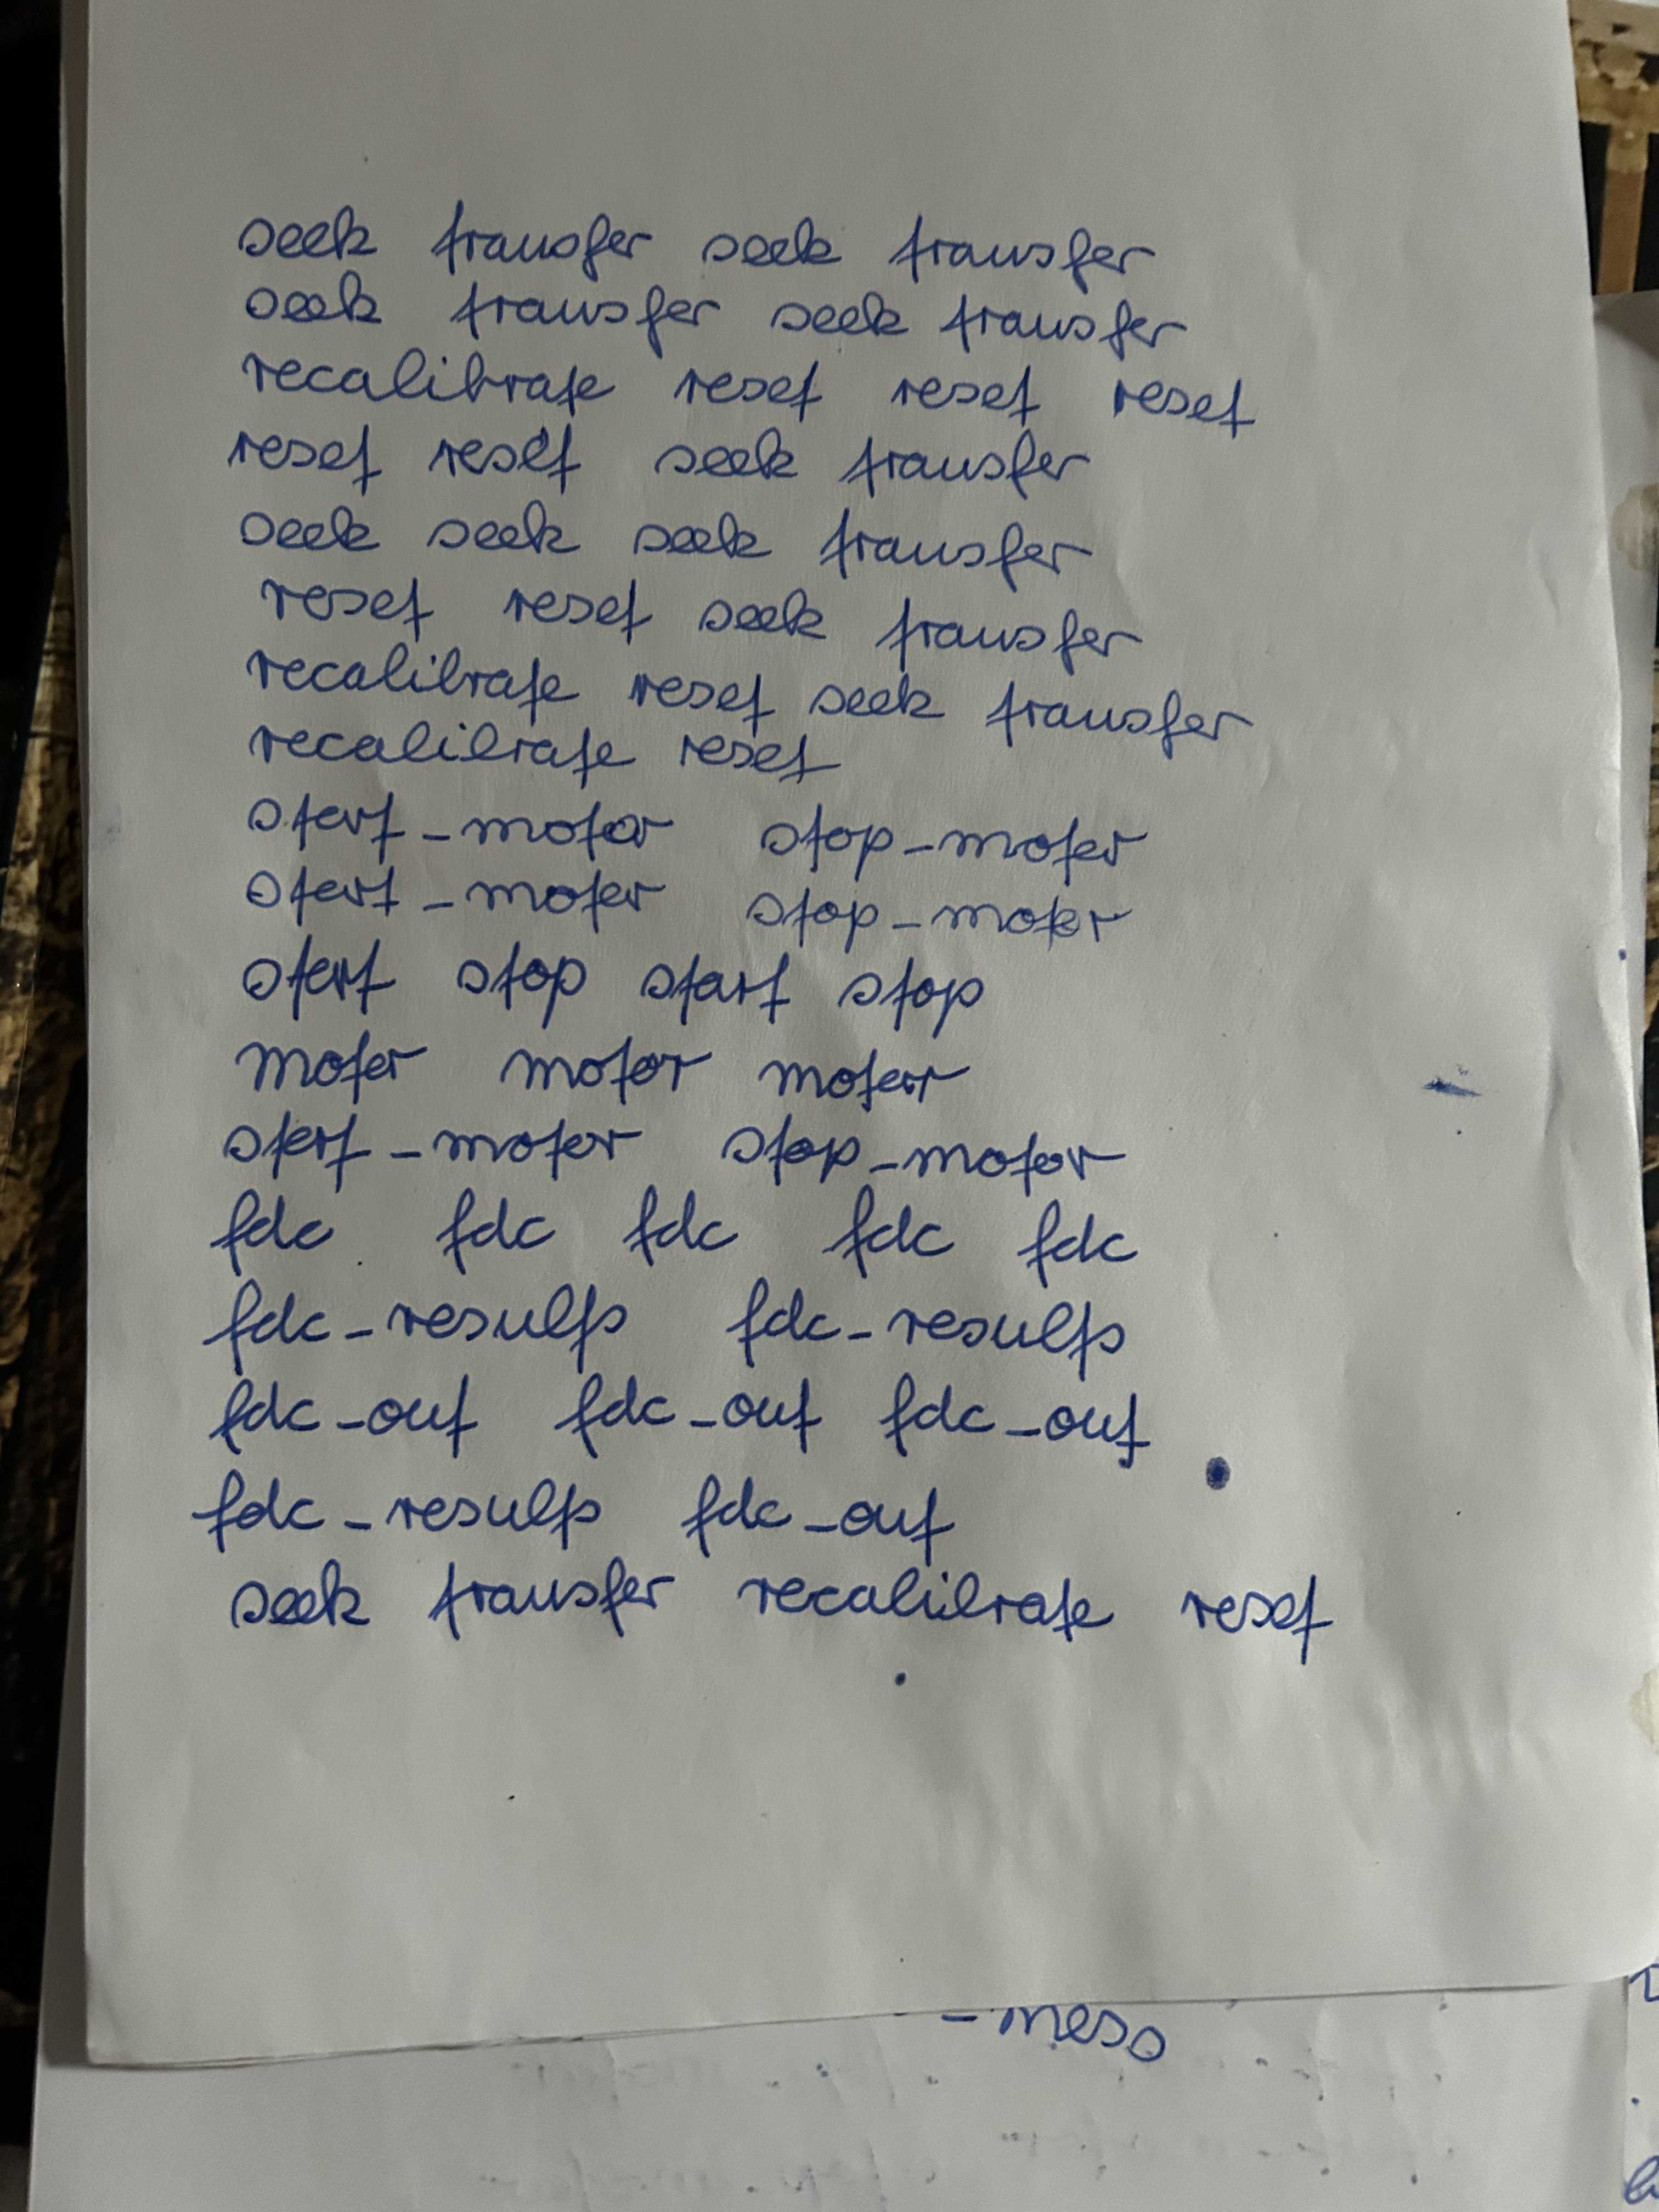 seek transfer seek transfer
seek transfer seek transfer
recalibrate reset reset reset
reset reset seek transfer
seek seek seek transfer
reset reset seek transfer
recalibrate reset seek transfer
recalibrate reset
start_motor stop_motor
start_motor stop_motor
start stop start stop
motor motor motor
start_motor stop_motor
fdc fdc fdc fdc fdc
fdc_results fdc_results
fdc_out fdc_out fdc_out
fdc_results fdc_out
seek transfer recalibrate reset
_mess